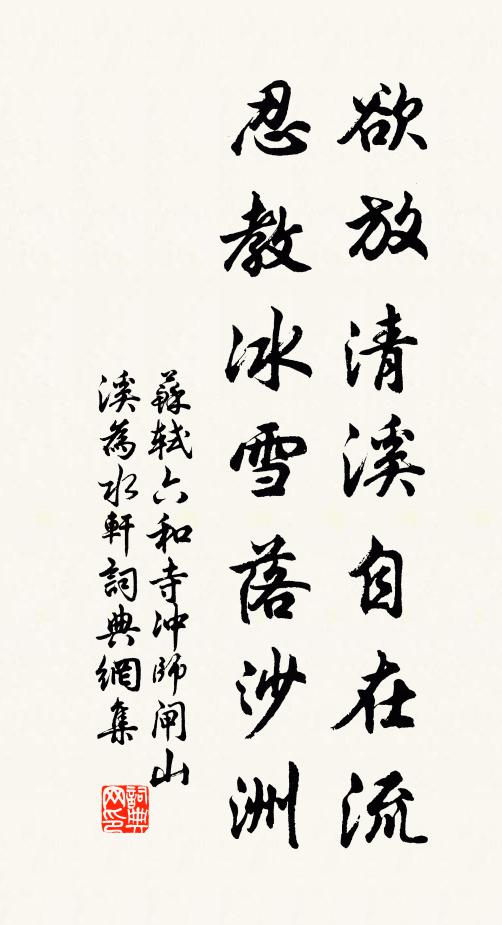 欲放清溪自在流
忍教冰雪落沙洲
蘇軾六和寺冲師闸山
溪為水軒詞典網集
詞典網印